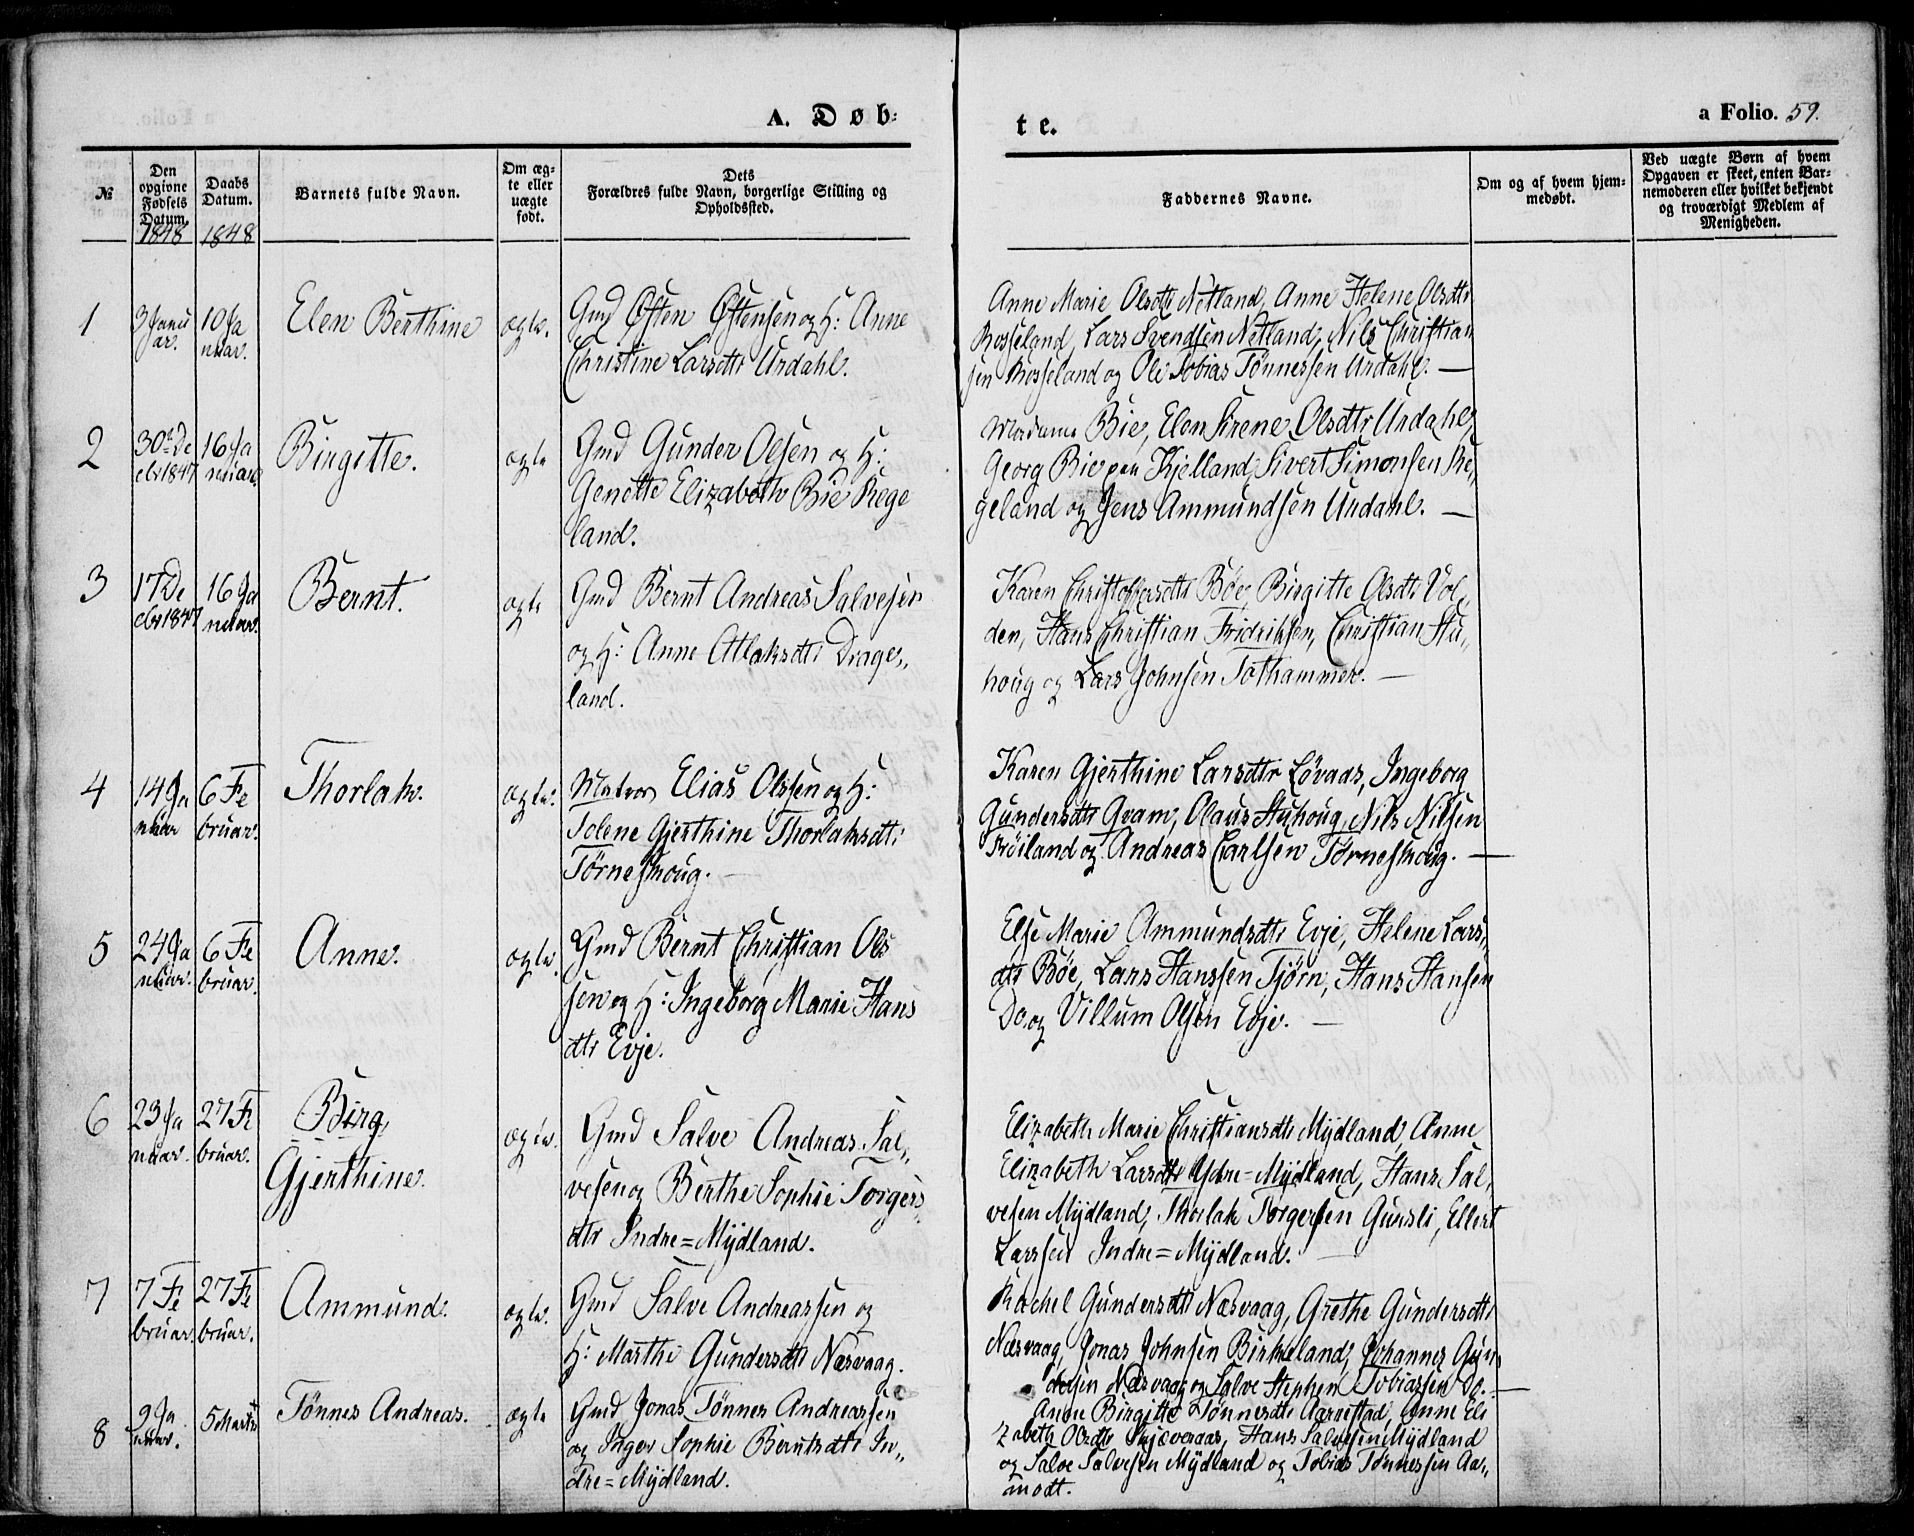 A. Døb-
te.
a Folio. 59.
№
Den opgivne Fødsels Datum.
1848
Daabs Datum.
1848
Barnets fulde Navn.
Om æg-
te eller
uægte
født.
Dets
Forældres fulde Navn, borgerlige Stilling og
Opholdssted.
Faddernes Navne.
Om og af hvem hjem-
medøbt.
Ved uægte Børn af hvem
Opgaven er skeet, enten Bar-
nemoderen eller hvilket bekjendt
og troværdigt Medlem af
Menigheden.
1
3 Janu
ar.
10 Ja
nuar.
Elen Berthine
ægte.
Gmd Østen Østensen og H: Anne
Christine Larsdtr Urdahl.
Anne Marie Olsdtr Netland, Anne Helene Olsdtr
Rosseland, Lars Svendsen Netland, Nils Christian
sen Rosseland og Ole Tobias Tønnessen Urdahl. —
2
30te De
cbr 1847
16 Ja
nuar.
Birgitte.
ægte
Gmd Gunder Olsen og H:
Genette Elizabeth Bie Rege
land.
Madame Bie, Elen Sirene Olsdtr Urdahl,
Georg Bie paa Kjelland, Sivert Simonsen Re„
geland og Jens Ammundsen Urdahl. —
3
17 De
cbr 1847
16 Ja
nuar.
Bernt.
ægte
Gmd Bernt Andreas Salvesen
og H: Anne Atlaksdtr Drage„
land.
Karen Christoffersdtr Bøe, Birgitte Olsdtr Vol„
den, Hans Christian Fridriksen, Christian Stu„
houg og Lars Johnsen Tothammer. —
4
14 Ja
nuar
6 Fe
bruar.
Thorlak.
ægte.
Matros Elias Olsen og H:
Tolene Gjerthine Thorlaksdtr
Tørneshoug.
Karen Gjerthine Larsdtr Løvaas, Ingeborg
Gundersdtr Qvam, Olaus Stuhoug, Nils Nilsen
Frøiland og Andreas Carlsen Tørneshoug. —
5
24 Ja
nuar.
6 Fe
bruar.
Anne.
ægte.
Gmd Bernt Christian Ols
sen og H: Ingeborg Marie Hans
dtr Evje.
Else Marie Ammundsdtr Evje, Helene Lars„
dtr Bøe, Lars Hanssen Tjørn, Hans Hansen
Do. og Villum Olsen Evje. —
6
23 Ja
nuar.
27 Fe
bruar.
Birg
Gjerthine.
ægte.
Gmd Salve Andreas Sal„
vesen og Berthe Sophie Torgers„
dtr Indre=Mÿdland.
Elizabeth Marie Christiansdtr Mÿdland, Anne
Elizabeth Larsdtr Ydre=Mÿdland, Hans Sal„
vesen Mÿdland, Thorlak Torgersen Gursli, Ellert
Larssen Indre=Mÿdland. —
7
7 Fe
bruar.
27 Fe
bruar.
Ammund.
ægte.
Gmd Salve Andreassen og
H: Marthe Gundersdtr Næsvaag.
Rachel Gundersdtr Næsvaag, Grethe Gundersdtr
Næsvaag, Jonas Johnsen Birkeland, Johannes Gun„
dersen Næsvaag og Salve Stephen Tobiassen Do. —
8
9 Ja
nuar.
5 Marts
Tønnes Andreas.
ægte
Gmd Jonas Tønnes Andreassen
og Inger Sophie Berntsdtr In„
dre=Mÿdland.
Anne Birgitte Tønnesdtr Aarrestad, Anne Eli
zabeth Olsdtr Skjæveraas, Hans Salvesen Mÿdland
og Salve Salvesen Mÿdland og Tobias Tønnessen Aa„
modt.